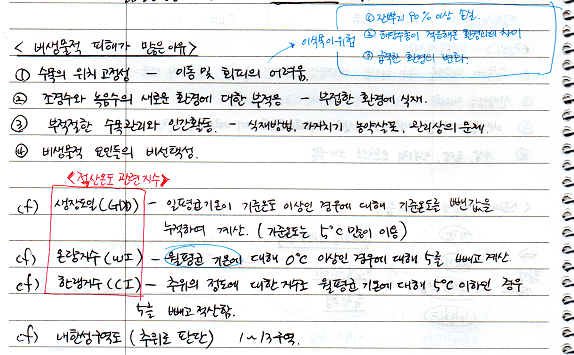 ① 잔뿌리 90% 이상 손실.
② 해당수종이 적응해온 환경과의 차이
③ 급격한 환경의 변화.
이식목이 위험
< 비생물적 피해가 많은 이유 >
① 수목의 위치 고정성 - 이동 및 회피의 어려움.
② 조경수와 녹음수의 새로운 환경에 대한 부적응 - 부적합한 환경에 식재.
③ 부적절한 수목관리와 인간활동. - 식재방법, 가지치기, 농약살포, 관리상의 문제.
④ 비생물적 요인들의 비선택성.
<적산온도 관련 지수>
cf) 생장도일(GDD) - 일평균기온이 기준온도 이상인 경우에 대해 기준온도를 뺀 값을
누적하여 계산. (기준온도는 5℃ 많이 이용)
cf) 온량지수(WI) - 월평균 기온에 대해 0℃ 이상인 경우에 대해 5를 빼고 계산.
cf) 한랭지수(CI) - 추위의 정도에 대한 지수로 월평균 기온에 대해 5℃ 이하인 경우
5를 빼고 적산함.
cf) 내한성구역도 (추위로 판단) 1~13구역.